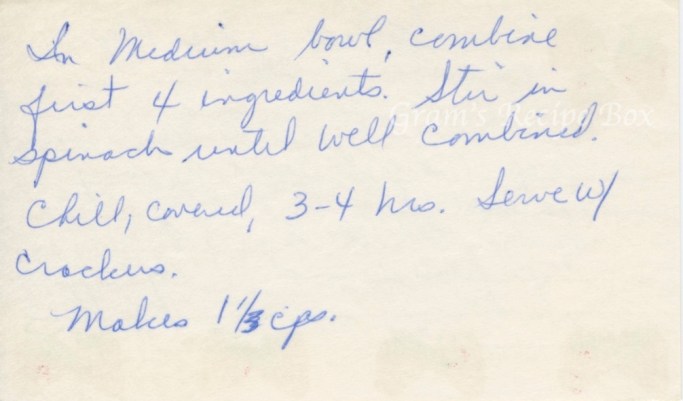 In Medium bowl, combine
first 4 ingredients. Stir in
Gram's Recipe Box
spinach until well combined.
Chill, covered, 3-4 hrs. Serve w/
Crackers.
Makes 1 1/3 cps.